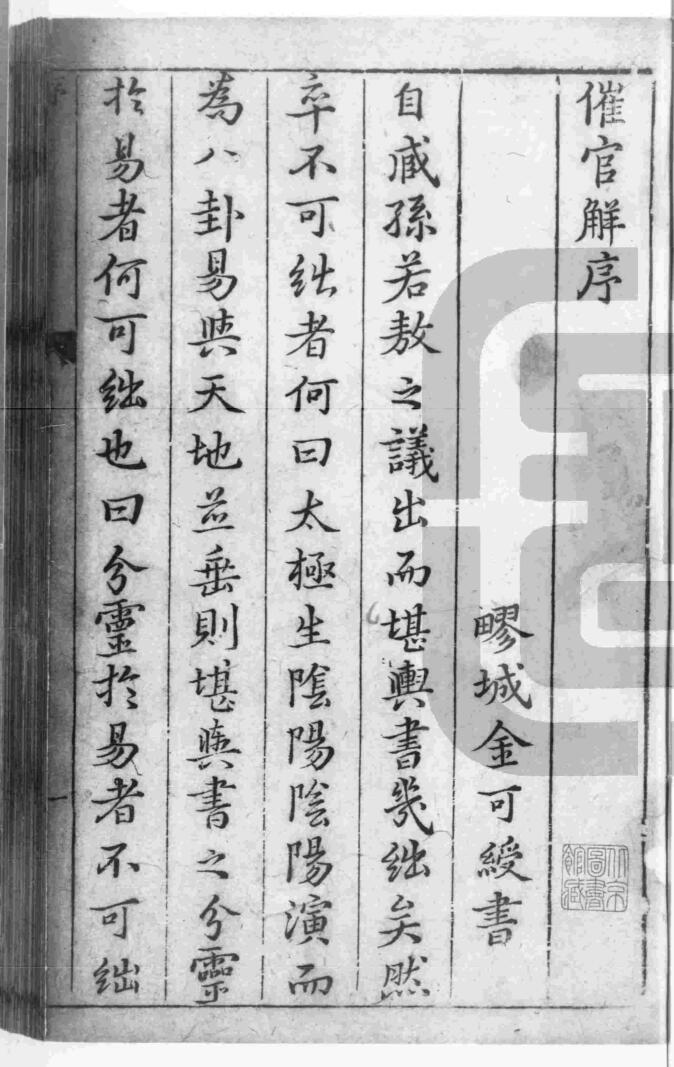 催官解序
疁城金可綬書
自臧孫若敖之議出而堪輿書幾絀矣然
卒不可絀者何曰太極生陰陽陰陽演而
為八卦易與天地並垂則堪輿書之分靈
扵易者何可絀也曰分靈扵易者不可絀
序
一
北京圖書館藏